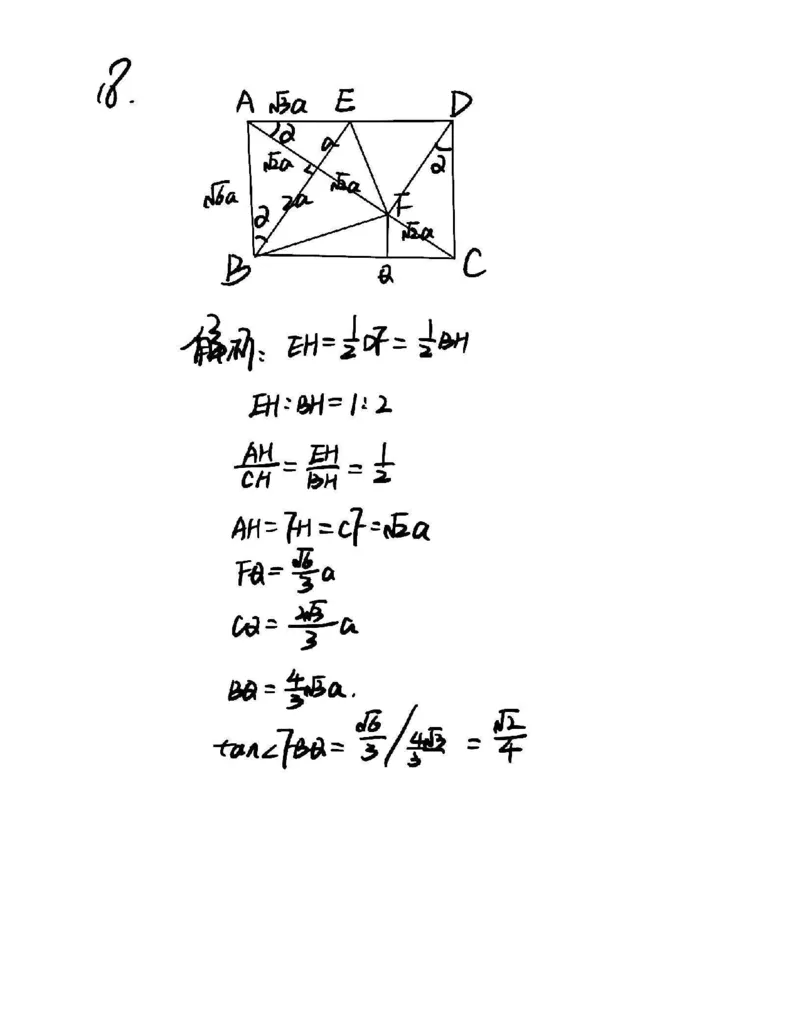 18.
A √3a E D
α a
√2a α
√6a √2a F
α 2a √2a
B Q C
解析: EH=1/2DF=1/2BH
EH:BH=1:2
AH/CH=EH/BH=1/2
AH=FH=CF=√2a
FQ=√6/3a
CQ=2√3/3a
BQ=4/3√3a.
tan∠FBQ=√6/3/4√3/3=√2/4